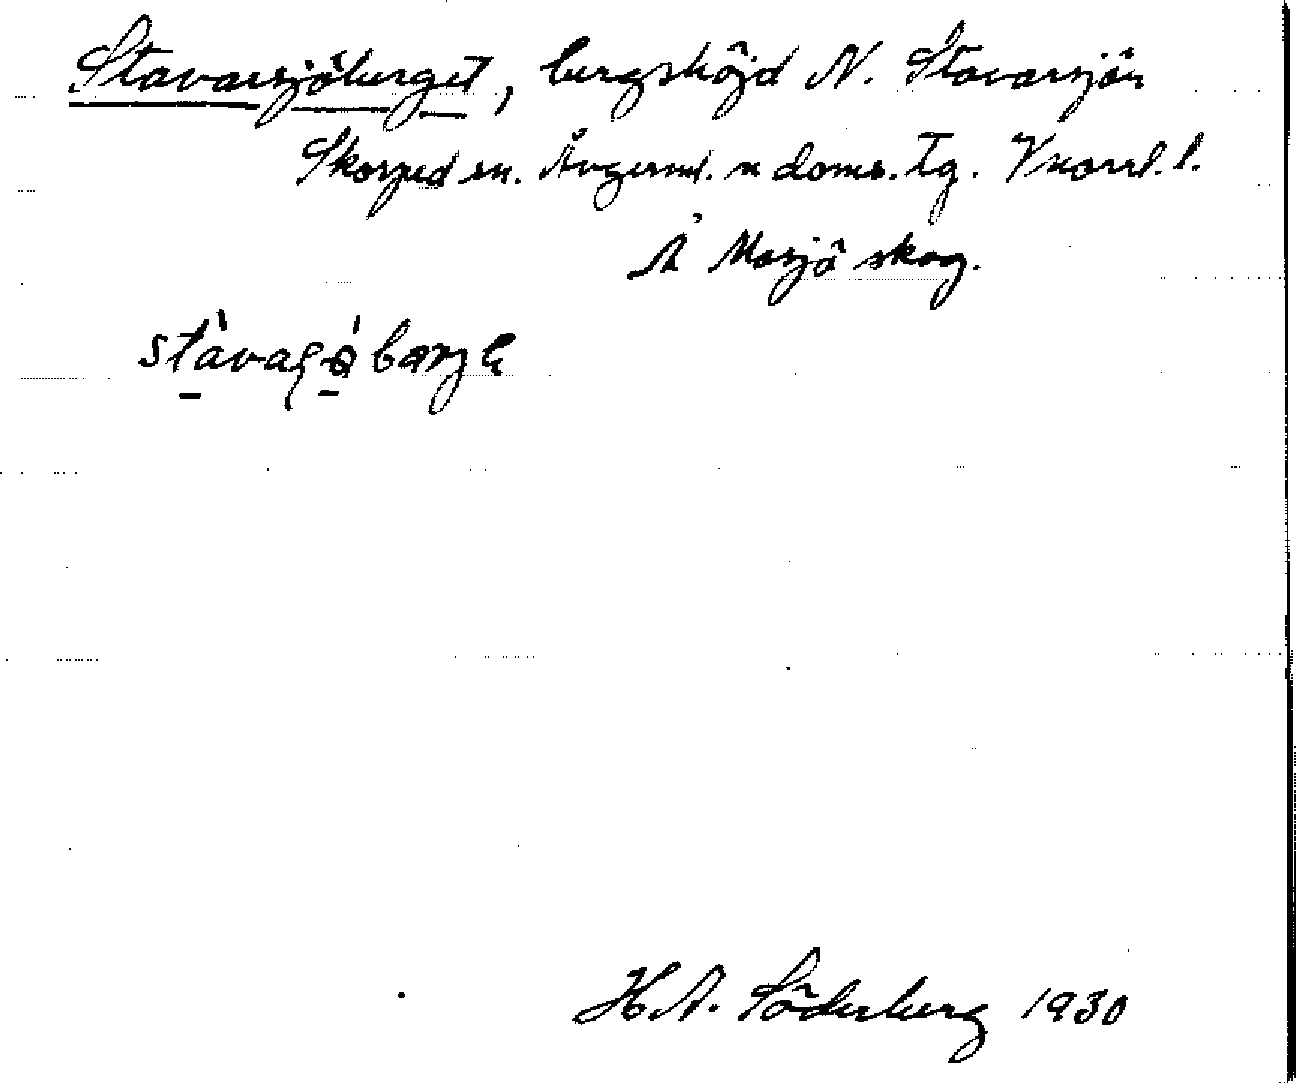 Stavarsjöberget, bergshöjd N. Stavarsjön
Skorped sn. Ångerml. n doms. Tg. Vnorrl. l.
Å Mosjö skog.
H.A. Söderberg 1930